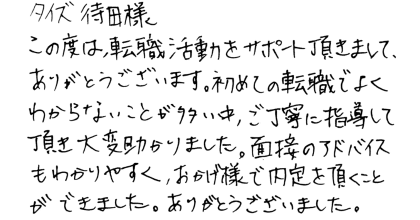 タイズ 待田様
この度は、転職活動をサポート頂きまして、
ありがとうございます。初めての転職でよく
わからないことが多い中、ご丁寧に指導して
頂き大変助かりました。面接のアドバイス
もわかりやすく、おかげ様で内定を頂くこと
ができました。ありがとうございました。